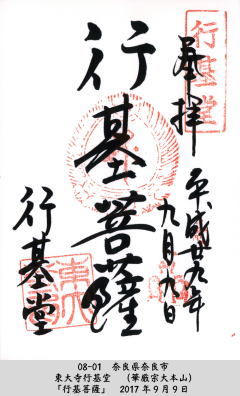 行基堂
奉拝
平成廿九年
九月九日
行基菩薩
行基堂
08-01 奈良県奈良市
東大寺行基堂 (華厳宗大本山)
「行基菩薩」 2017年9月9日